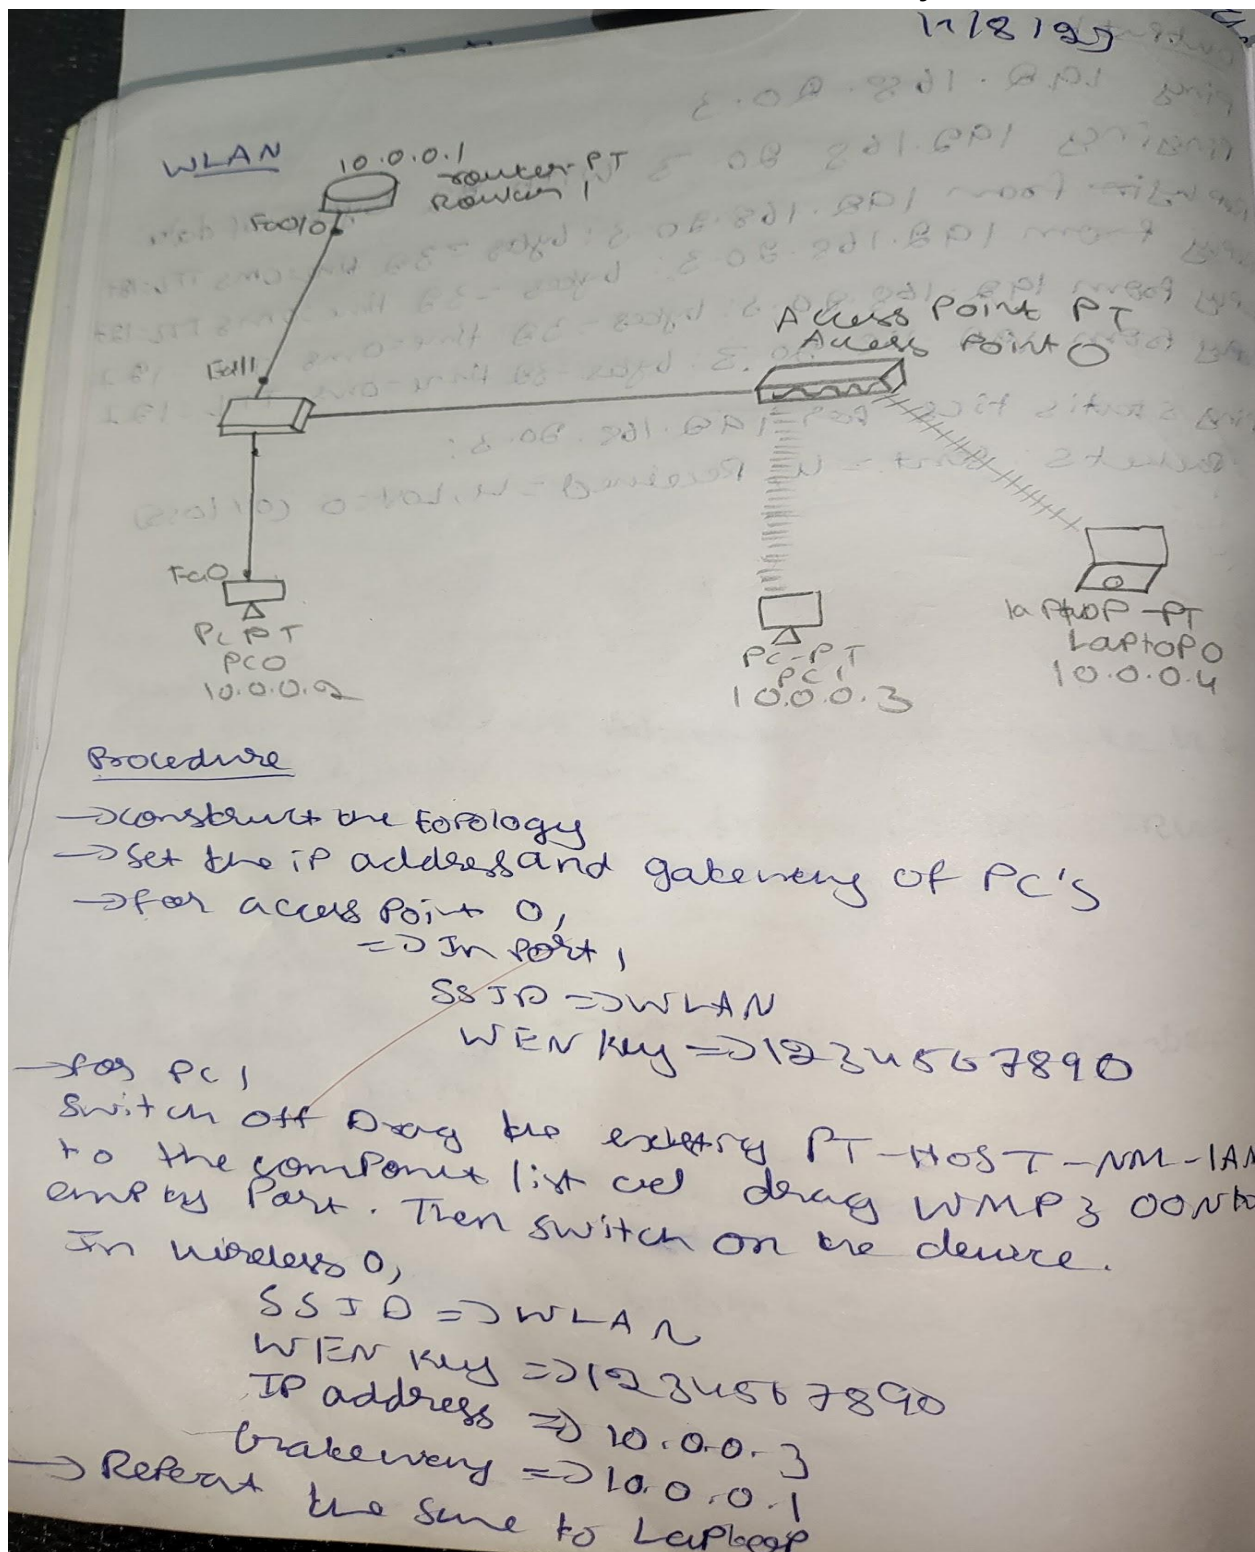 11/8/25
WLAN
10.0.0.1
router-PT
Router 1
Fa0/0
Access Point PT
Access Point 0
Fa1/1
Fa0
PC PT
PC0
10.0.0.2
PC-PT
PC 1
10.0.0.3
laptop-PT
Laptop0
10.0.0.4
Procedure
→ construct the topology
→ Set the iP address and gateway of PC's
→ for access Point 0,
=> In Port 1
SSID => WLAN
WEN key => 1234567890
→ for PC 1
Switch off Drag the existing PT-HOST-NM-1AM
to the component list and drag WMP300N to
empty Port. Then switch on the device.
In wireless 0,
SSID => WLAN
WEN key => 1234567890
IP address => 10.0.0.3
Gateway => 10.0.0.1
→ Repeat the same to Laptop